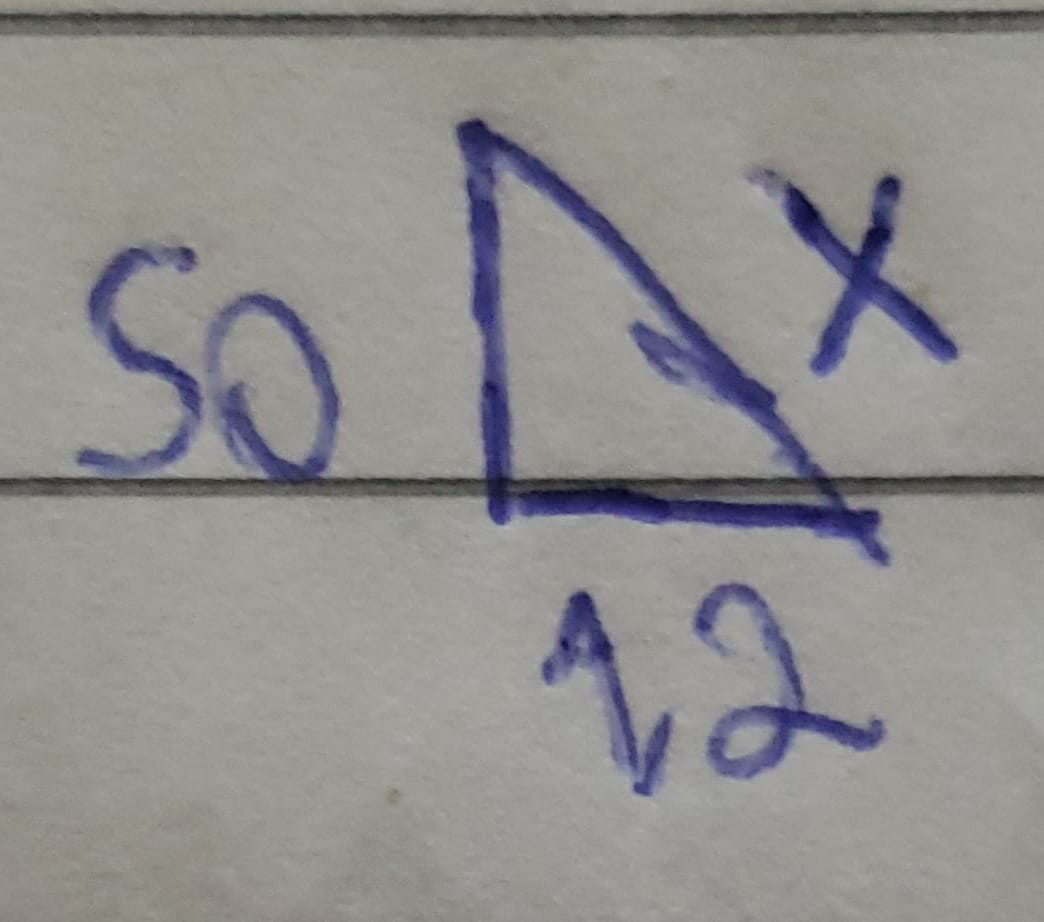 50
x
12